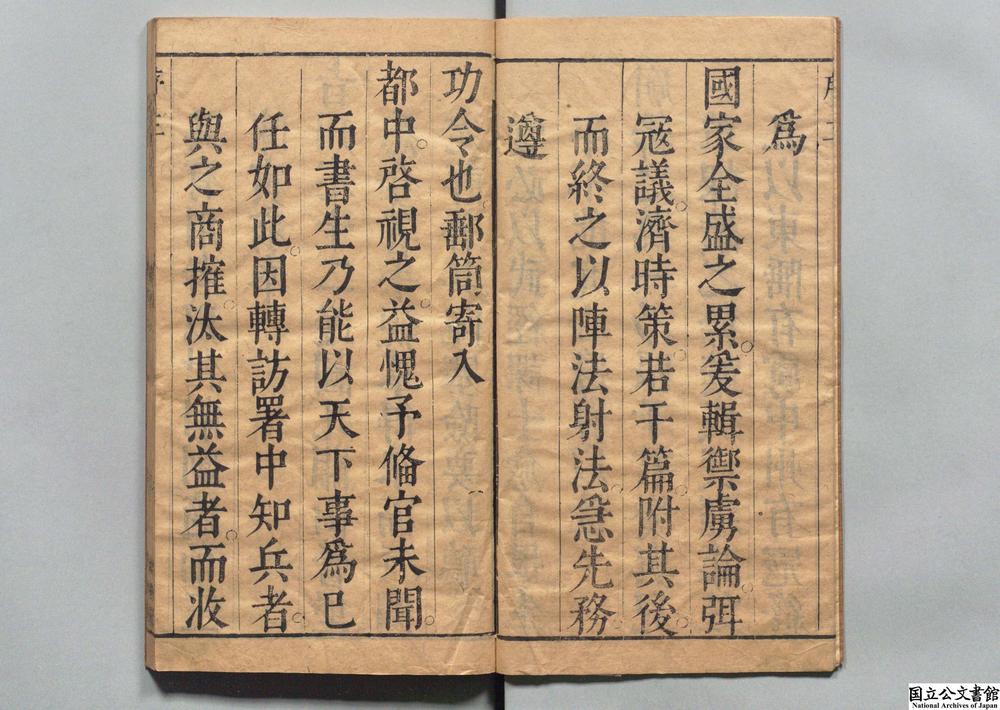 為
國家全盛之累。爰輯禦虜論。弭
冦議。濟時策。若干篇。附其後。
而終之以陣法射法。急先務。
遵
功令也。郵筒寄入
都中。啓視之。益愧予俻官未聞。
而書生乃能以天下事為已
任如此。因轉訪署中知兵者。
與之商搉。汰其無益者。而收
序三
国立公文書館
National Archives of Japan